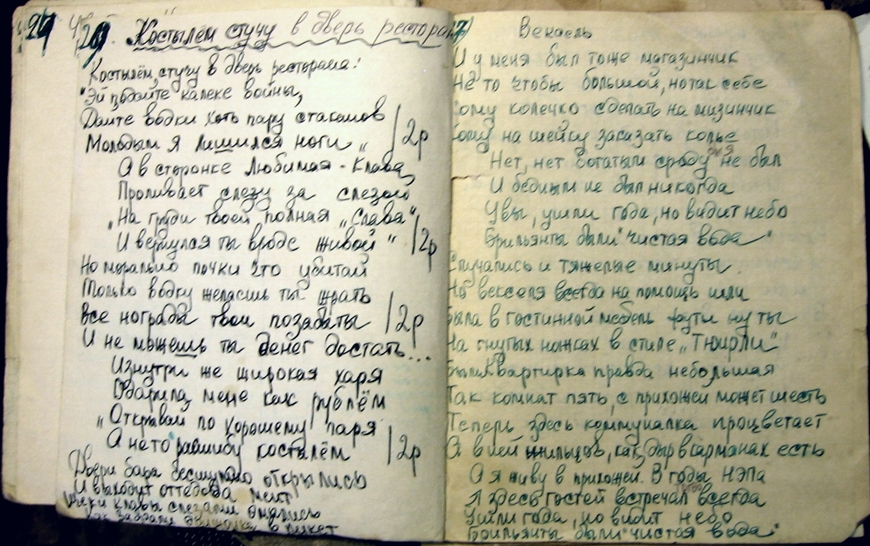 28. Костылём стучу в дверь ресторана
Костылём, стучу в дверь ресторана!
"Эй подайте калеке войны,
Дайте водки хоть пару стаканов
Молодым я лишился ноги" 2р
А в сторонке Любимая - Клава,
Проливает слезу за слезой
"На груди твоей полная "Слава"
И вернулся ты вроде живой" 2р
Но морально почки что убитый
Только водку желаешь ты жрать
Все нограды твои позабыты 2р
И не можешь ты денег достать...
Изнутри же широкая харя
Одарила, меня как рублём
"Открывай по хорошему паря
А не то расшибу костылём 2р
Двери бара бесшумно открылись
И выходит оттедова мент
Щеки клавы слезами
в пикет
Вексель
И у меня был тоже магазинчик
Не то чтобы большой, но так себе
Кому колечко сделать на мизинчик
Кому на шейку заказать колье
Нет, нет богатым сразу я не был
И бедным не был никогда
Увы, ушли года, но видит небо
Брильянты были "чистая вода"
Случались и тяжелые минуты.
Но векселя всегда на помощь шли
Была в гостинной мебель футы ну ты
На гнутых ножках в стиле "Тюирли"
Была квартирка правда небольшая
Так комнат пять, с прихожей может шесть
Теперь здесь коммуналка процветает
А в ней жильцов, как дыр в карманах есть
А я живу в прихожей. В годы НЭПа
Я здесь гостей встречал всегда
Ушли года, но видит небо
Брильянты были "чистая вода"